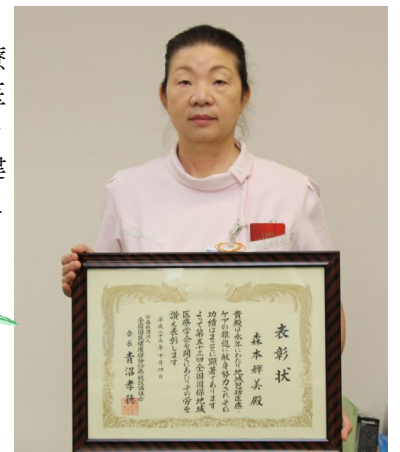 表彰状
森本輝美殿
貴殿は永年にわたり地域包括医療・
ケアの推進に献身努力されその
功績はまことに顕著であります
よって第五十三回全国国保地域
医療学会を開くにあたりその労を
讃え表彰します
平成二十五年十月四日
公益社団法人
全国国民健康保険診療施設協議会
会長 青沼孝徳